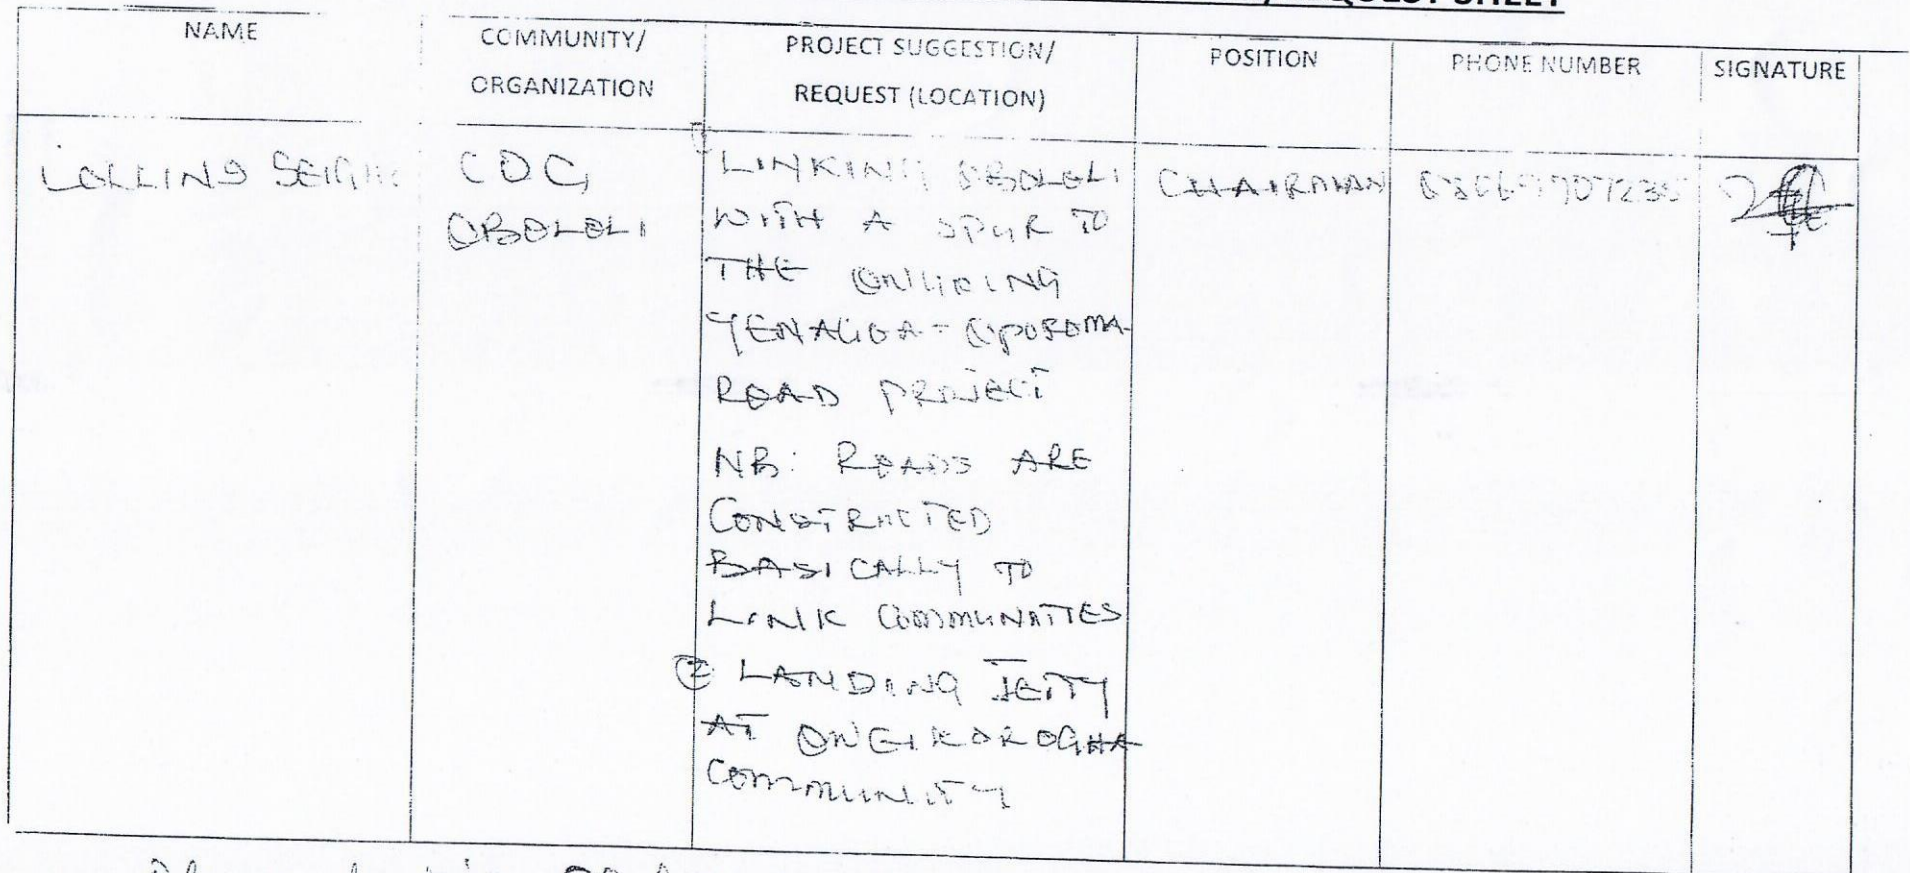 REQUEST SHEET
NAME
COMMUNITY/
ORGANIZATION
PROJECT SUGGESTION/
REQUEST (LOCATION)
POSITION
PHONE NUMBER
SIGNATURE
COC,
OBOLOLI
①
LINKING OBOLOLI
WITH A SPUR TO
THE
YENAGOA - OPOROMA
ROAD PROJECT
NB: ROADS ARE
CONSTRUCTED
BASICALLY TO
LINK COMMUNATIES
② LANDING JETTY
AT ONGIKOROGHA
COMMUNITY
CHAIRMAN